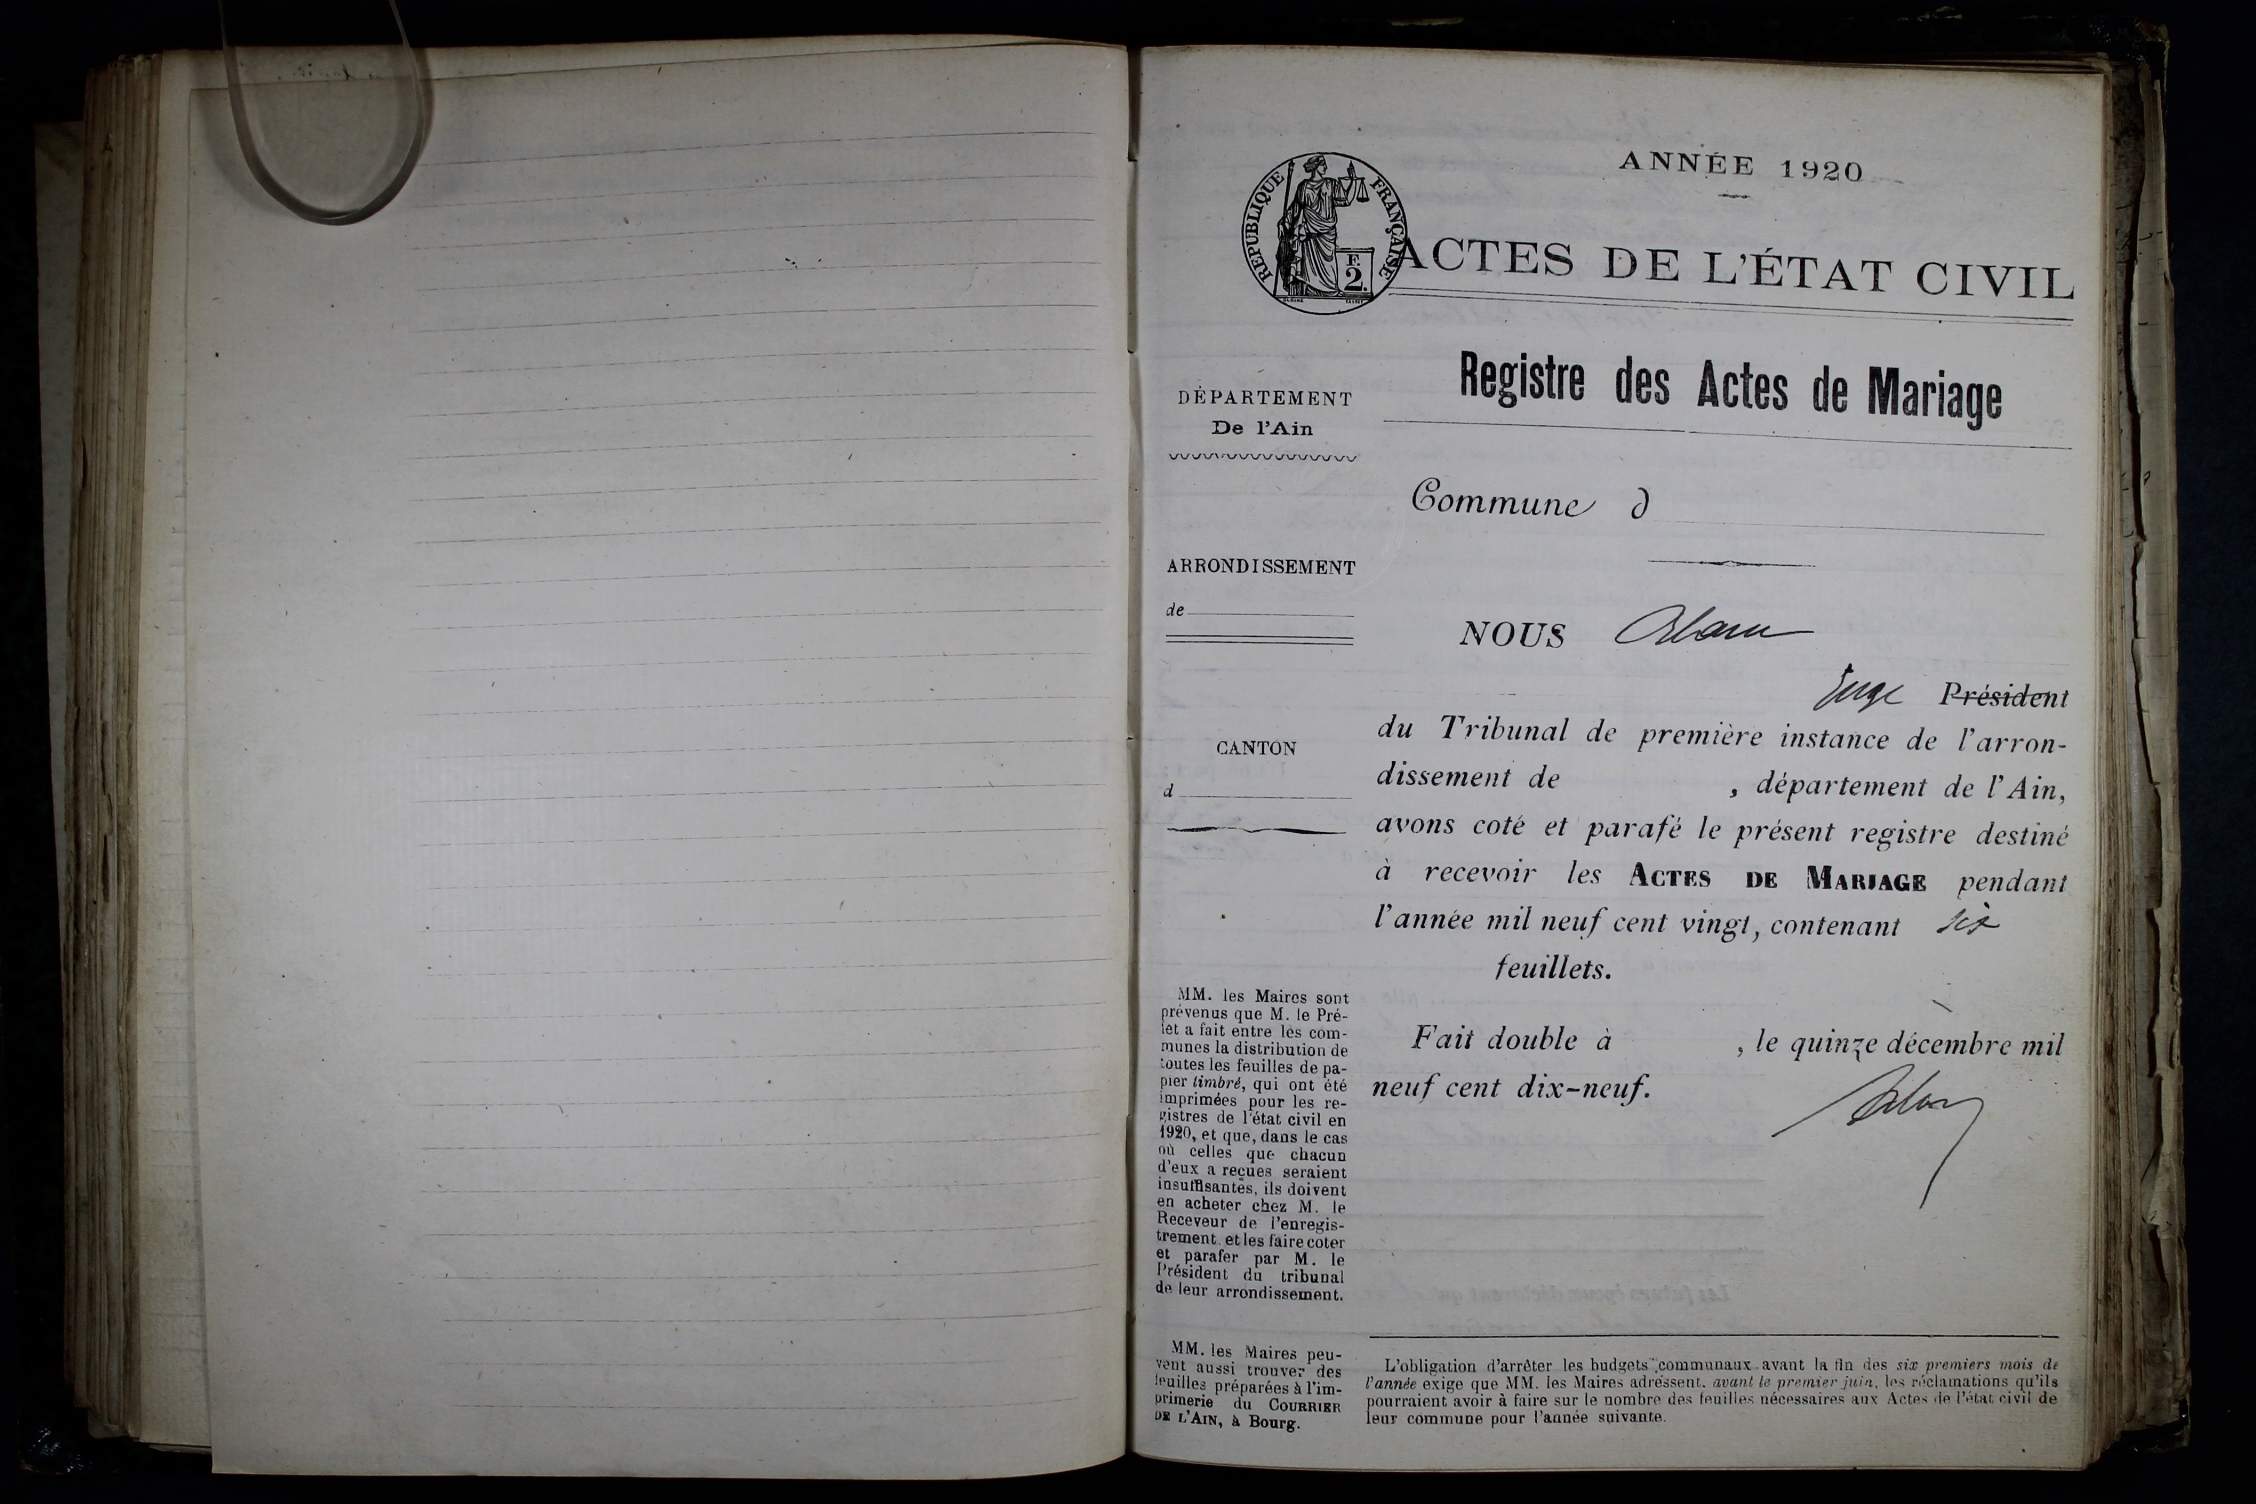 ANNÉE 1920
RÉPUBLIQUE FRANÇAISE
F.
2.
ACTES DE L'ÉTAT CIVIL
Registre des Actes de Mariage
DÉPARTEMENT
De l'Ain
Commune d
ARRONDISSEMENT
de
CANTON
d
NOUS
Juge Président
du Tribunal de première instance de l'arron-
dissement de , département de l'Ain,
avons coté et parafé le présent registre destiné
à recevoir les ACTES DE MARIAGE pendant
l'année mil neuf cent vingt, contenant six
feuillets.
Fait double à , le quinze décembre mil
neuf cent dix-neuf.
MM. les Maires sont
prévenus que M. le Pré-
fet a fait entre les com-
munes la distribution de
toutes les feuilles de pa-
pier timbré, qui ont été
imprimées pour les re-
gistres de l'état civil en
1920, et que, dans le cas
où celles que chacun
d'eux a reçues seraient
insuffisantes, ils doivent
en acheter chez M. le
Receveur de l'enregis-
trement et les faire coter
et parafer par M. le
Président du tribunal
de leur arrondissement.
MM. les Maires peu-
vent aussi trouver des
feuilles préparées à l'im-
primerie du COURRIER
DE L'AIN, à Bourg.
L'obligation d'arrêter les budgets communaux avant la fin des six premiers mois de
l'année exige que MM. les Maires adressent, avant le premier juin, les réclamations qu'ils
pourraient avoir à faire sur le nombre des feuilles nécessaires aux Actes de l'état civil de
leur commune pour l'année suivante.